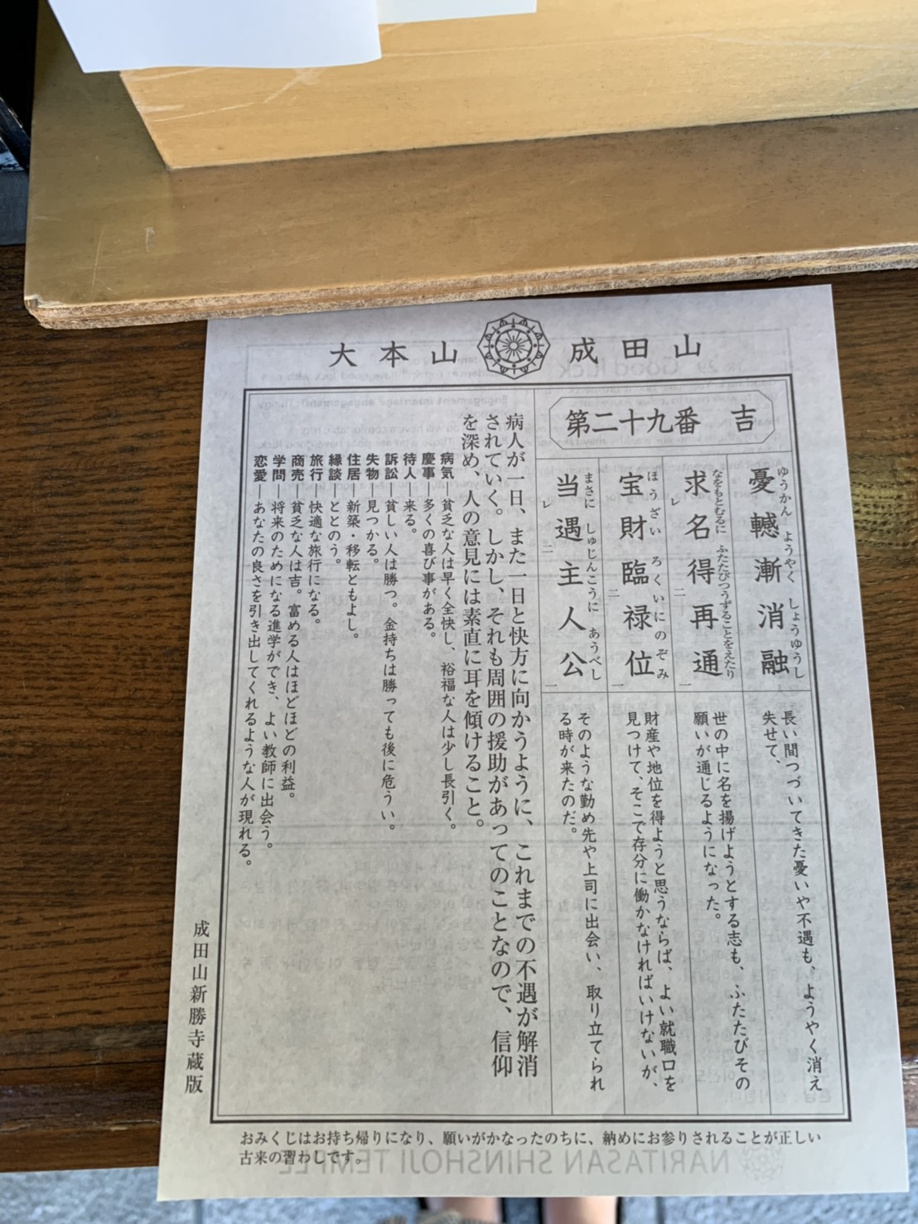 大本山 成田山
第二十九番 吉
憂轗漸消融
ゆうかん ようやく しょうゆうし
長い間つづいてきた憂いや不遇も、ようやく消え
失せて、
求名得再通
なをもとむるに ふたたびつうずることをえたり
レ 二 一
世の中に名を揚げようとする志も、ふたたびその
願いが通じるようになった。
宝財臨禄位
ほうざい ろくいにのぞみ
二 一
財産や地位を得ようと思うならば、よい就職口を
見つけて、そこで存分に働かなければいけないが、
当遇主人公
まさに しゅじんこうに あうべし
レ 二 一
そのような勤め先や上司に出会い、取り立てられ
る時が来たのだ。
病人が一日、また一日と快方に向かうように、これまでの不遇が解消
されていく。しかし、それも周囲の援助があってのことなので、信仰
を深め、人の意見には素直に耳を傾けること。
病気―貧乏な人は早く全快し、裕福な人は少し長引く。
慶事―多くの喜び事がある。
待人―来る。
訴訟―貧しい人は勝つ。金持ちは勝っても後に危うい。
失物―見つかる。
住居―新築・移転ともよし。
縁談―ととのう。
旅行―快適な旅行になる。
商売―貧乏な人は吉。富める人はほどほどの利益。
学問―将来のためになる進学ができ、よい教師に出会う。
恋愛―あなたの良さを引き出してくれるような人が現れる。
成田山新勝寺蔵版
おみくじはお持ち帰りになり、願いがかなったのちに、納めにお参りされることが正しい
古来の習わしです。
NARITASAN SHINSHOJI TEMPLE